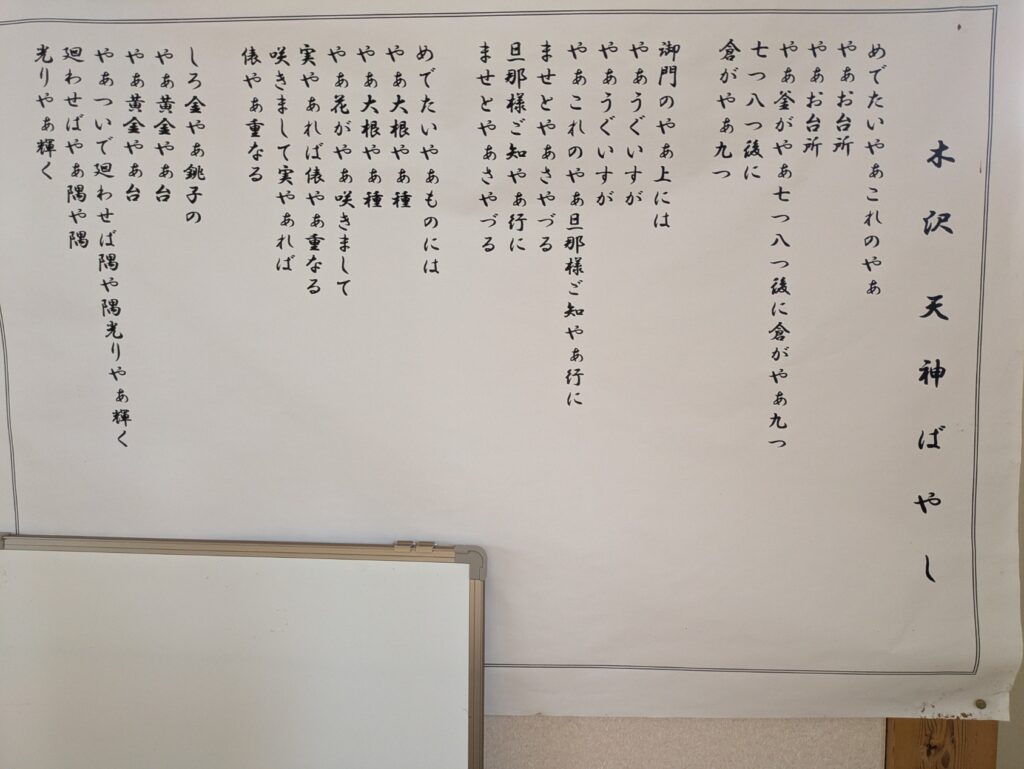 木沢天神ばやし
めでたいやあこれのやぁ
やぁお台所
やぁお台所
やぁ釜がやぁ七つ八つ後に倉がやぁ九つ
七つ八つ後に
倉がやぁ九つ
御門のやぁ上には
やぁうぐいすが
やぁうぐいすが
やぁこれのやぁ旦那様ご知やぁ行に
ませとやぁさやづる
旦那様ご知やぁ行に
ませとやぁさやづる
めでたいやぁものには
やぁ大根やぁ種
やぁ大根やぁ種
やぁ花がやぁ咲きまして
実やぁれば俵やぁ重なる
咲きまして実やぁれば
俵やぁ重なる
しろ金やぁ銚子の
やぁ黄金やぁ台
やぁ黄金やぁ台
やぁついで廻わせば隅や隅光りやぁ輝く
廻わせばやぁ隅や隅
光りやぁ輝く